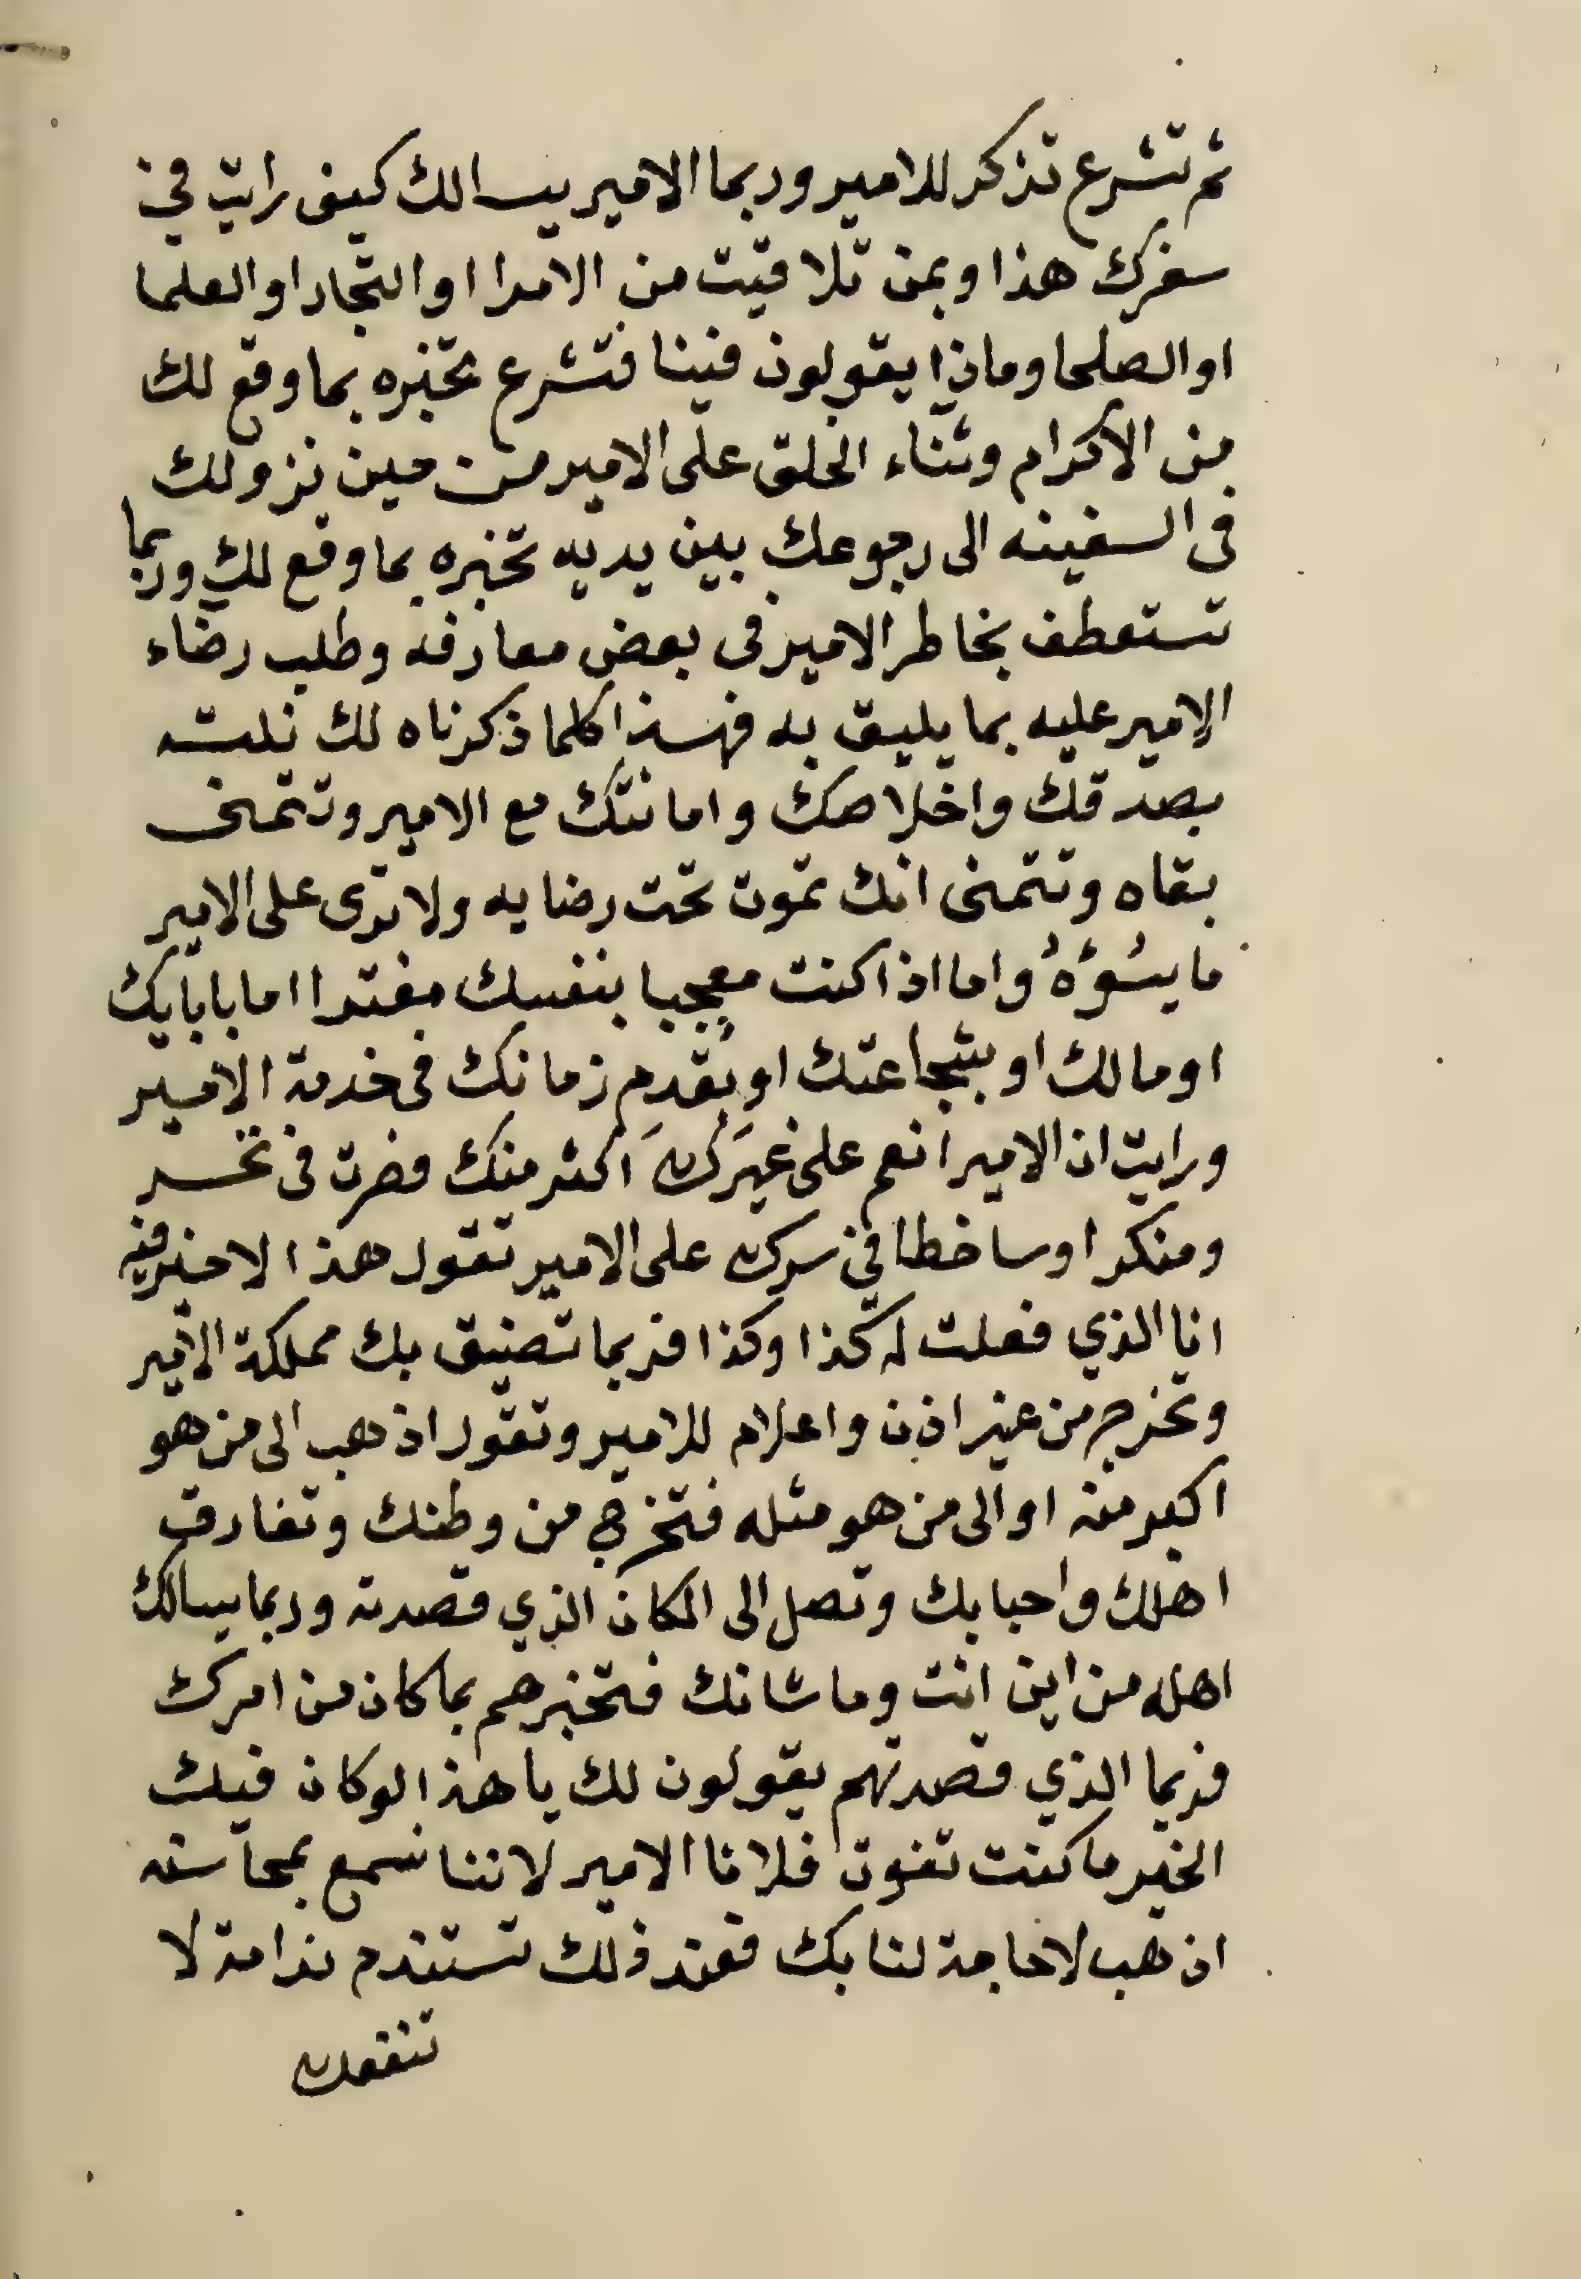 ثم تشرع تذكر للامير وربما الامير يسالك كيف رايت في
سفرك هذا وبمن تلاقيت من الامرا او التجار او العلما
او الصلحا وماذا يقولون فينا فتشرع تخبره بما وقع لك
من الاكرام وثناء الخلق على الامير من حين نزولك
في السفينه الى رجوعك بين يديه تخبره بما وقع لك وربما
تستعطف بخاطر الامير في بعض معارفه وطلب رضاء
الامير عليه بما يليق به فهذا كلما ذكرناه لك نلته
بصدقك واخلاصك وامانتك مع الامير وتتمنى
بقاه وتتمنى انك تموت تحت رضايه ولا ترى على الامير
ما يسُوءُهُ واما اذا كنت معجبا بنفسك مغترا اما بابايك
او مالك او بشجاعتك او بقدم زمانك في خدمة الامير
ورايت ان الامير انعم على غيرَك اكثر منك فصرت في تحسر
ومنكرا وساخطا في سرك على الامير تقول هذا لا خير فيه
انا الذي فعلت له كذا وكذا فربما تضيق بك مملكة الامير
وتخرج من غير اذن واعلام للامير وتقول اذهب الى من هو
اكبر منه او الى من هو مثله فتخرج من وطنك وتفارق
اهلك واحبابك وتصل الى المكان الذي قصدته وربما يسالك
اهله من اين انت وما شانك فتخبرهم بما كان من امرك
فربما الذي قصدتهم يقولون لك يا هذا لو كان فيك
الخير ما كنت تفوت فلانا الامير لاننا نسمع بمحاسنه
اذهب لا حاجة لنا بك فعند ذلك تستندم ندامة لا
تنفعك